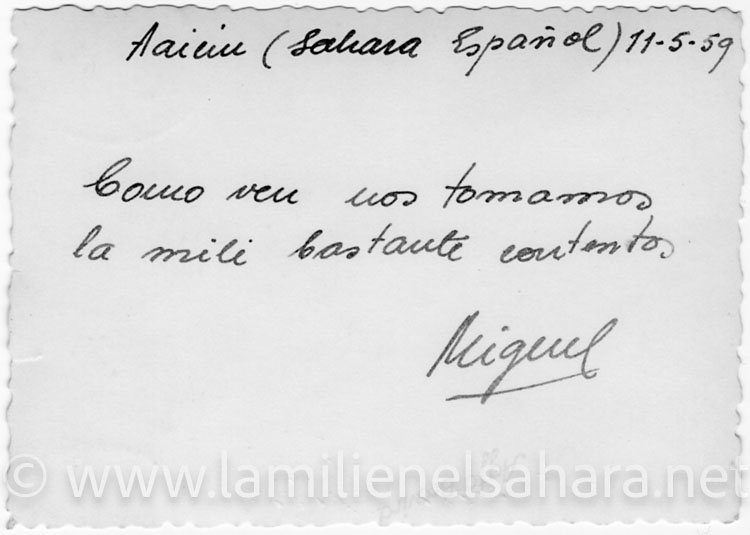 Aaiun (Sahara Español) 11-5-59
Como ven nos tomamos
la mili bastante contentos
Miguel
© www.lamilienelsahara.net